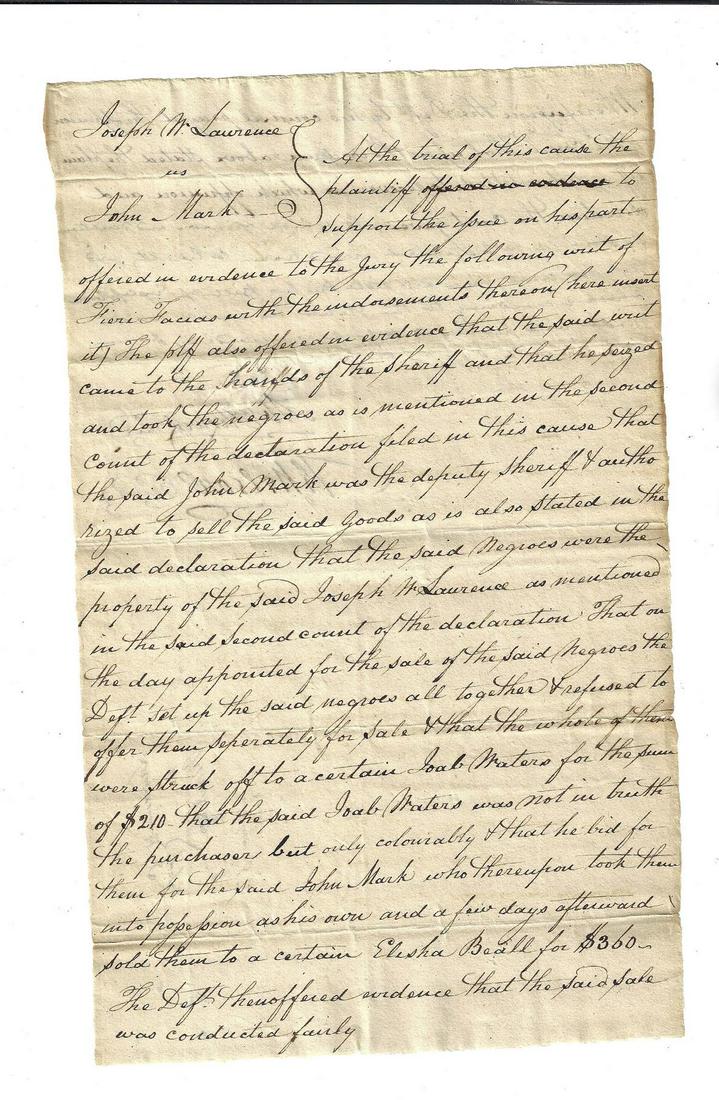 Joseph W Lawrence
vs
John Mark
At the trial of this cause the
plaintiff offered in evidence to
support the issue on his part
offered in evidence to the Jury the following writ of
Fieri Facias with the indorsements thereon (here insert
it) The plff also offered in evidence that the said writ
came to the hands of the Sheriff and that he seized
and took the negroes as is mentioned in the second
count of the declaration filed in this cause that
the said John Mark was the deputy Sheriff & autho
rized to sell the said Goods as is also stated in the
said declaration that the said Negroes were the
property of the said Joseph W Lawrence as mentioned
in the said second count of the declaration That on
the day appointed for the sale of the said Negroes the
Deft set up the said negroes all together & refused to
offer them seperately for sale & that the whole of them
were struck off to a certain Joab Waters for the sum
of $210 that the said Joab Waters was not in truth
the purchaser but only colourably & that he bid for
them for the said John Mark who thereupon took them
into possession as his own and a few days afterward
sold them to a certain Elisha Beall for $360
The Deft then offered evidence that the said sale
was conducted fairly